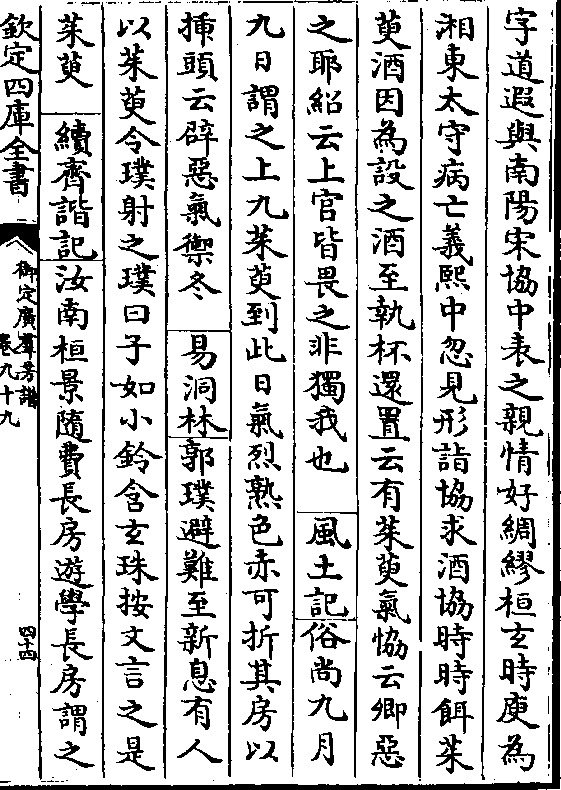 字道遐與南陽宋協中表之親情好綢繆桓玄時庾為
湘東太守病亡義熙中忽見形詣協求酒協時時餌茱
萸酒因為設之酒至執杯還置云有茱萸氣協云卿惡
之耶紹云上官皆畏之非獨我也　風土記俗尚九月
九日謂之上九茱萸到此日氣烈熟色赤可折其房以
揷頭云辟惡氣禦冬　易洞林郭璞避難至新息有人
以茱萸令璞射之璞曰子如小鈴含玄珠按文言之是
茱萸　續齊諧記汝南桓景隨費長房遊學長房謂之
欽定四庫全書
御定廣羣芳譜
卷九十九
四十四